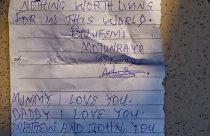 NOTHING WORTH LIVING
FOR IN THIS WORLD.
BALUFEMI
MOTUNRAYO
MUMMY I LOVE YOU.
DADDY I LOVE YOU.
MATTHEW AND JOHN YOU